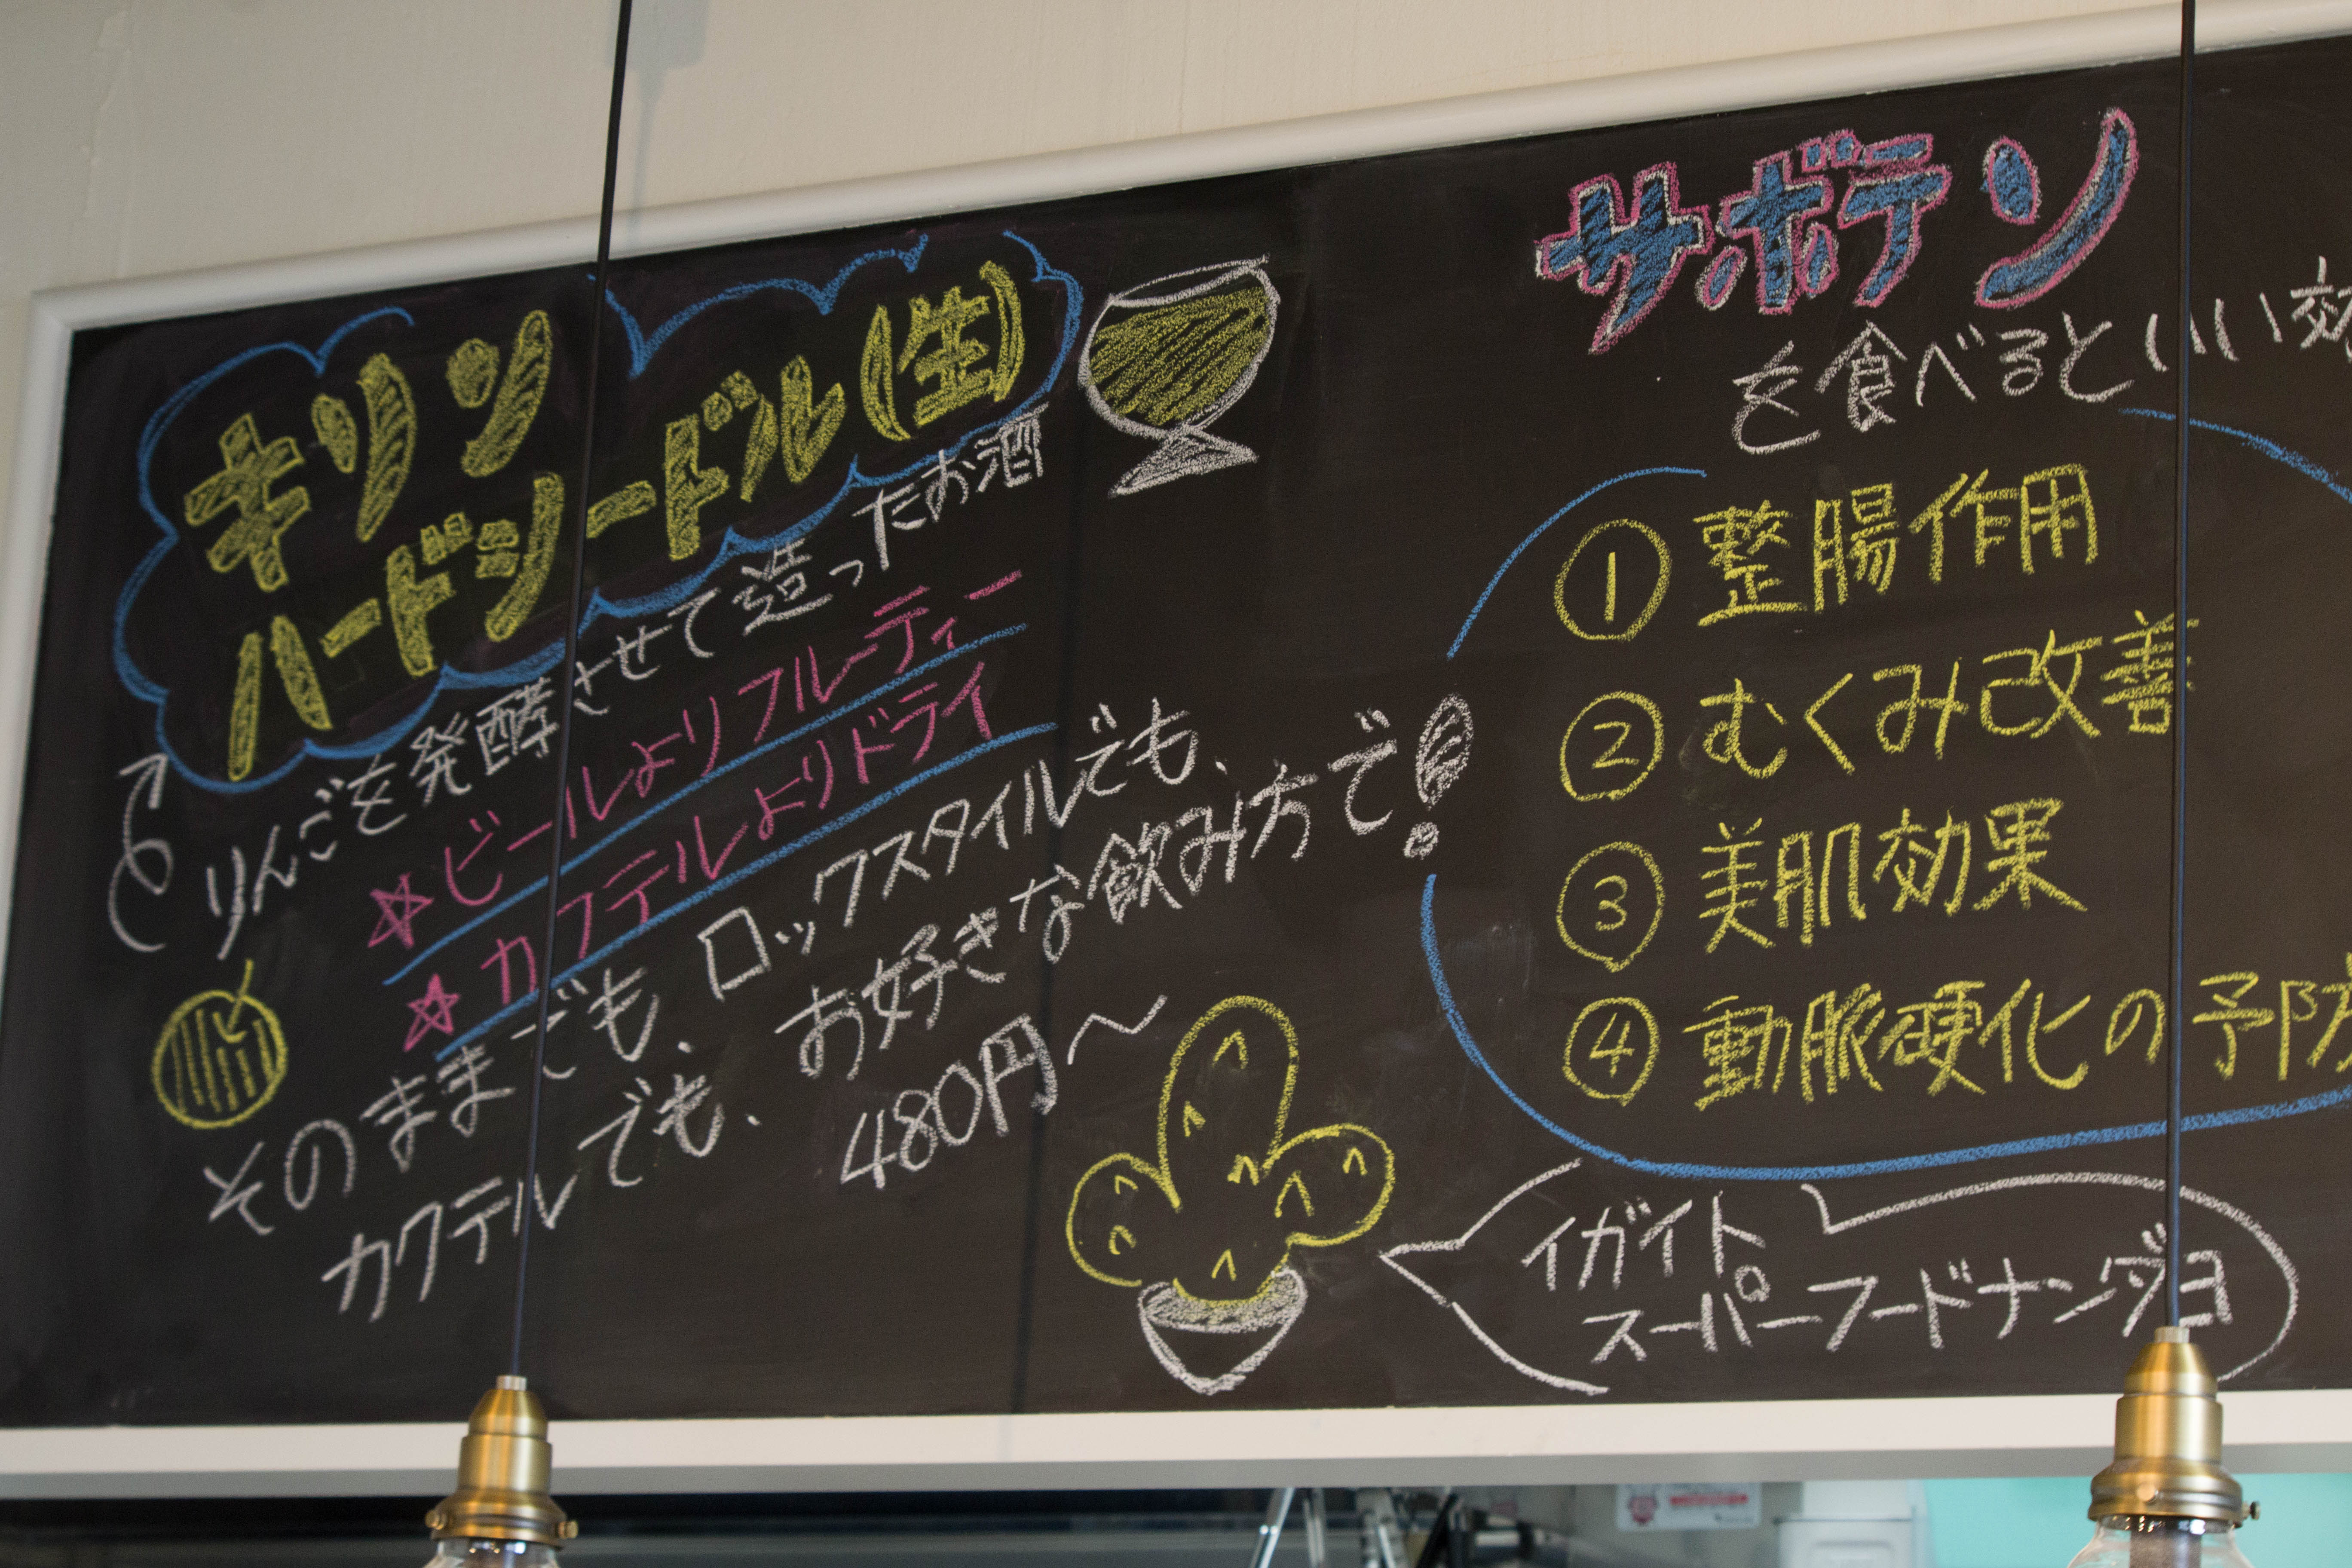 キリン
ハードシードル(生)
りんごを発酵させて造ったお酒
☆ビールよりフルーティー
☆カクテルよりドライ
そのままでも、ロックスタイルでも、
カクテルでも、お好きな飲み方で!
480円〜
サボテン
を食べるといい効
① 整腸作用
② むくみ改善
③ 美肌効果
④ 動脈硬化の予防
イガイト
スーパーフードナンジョ